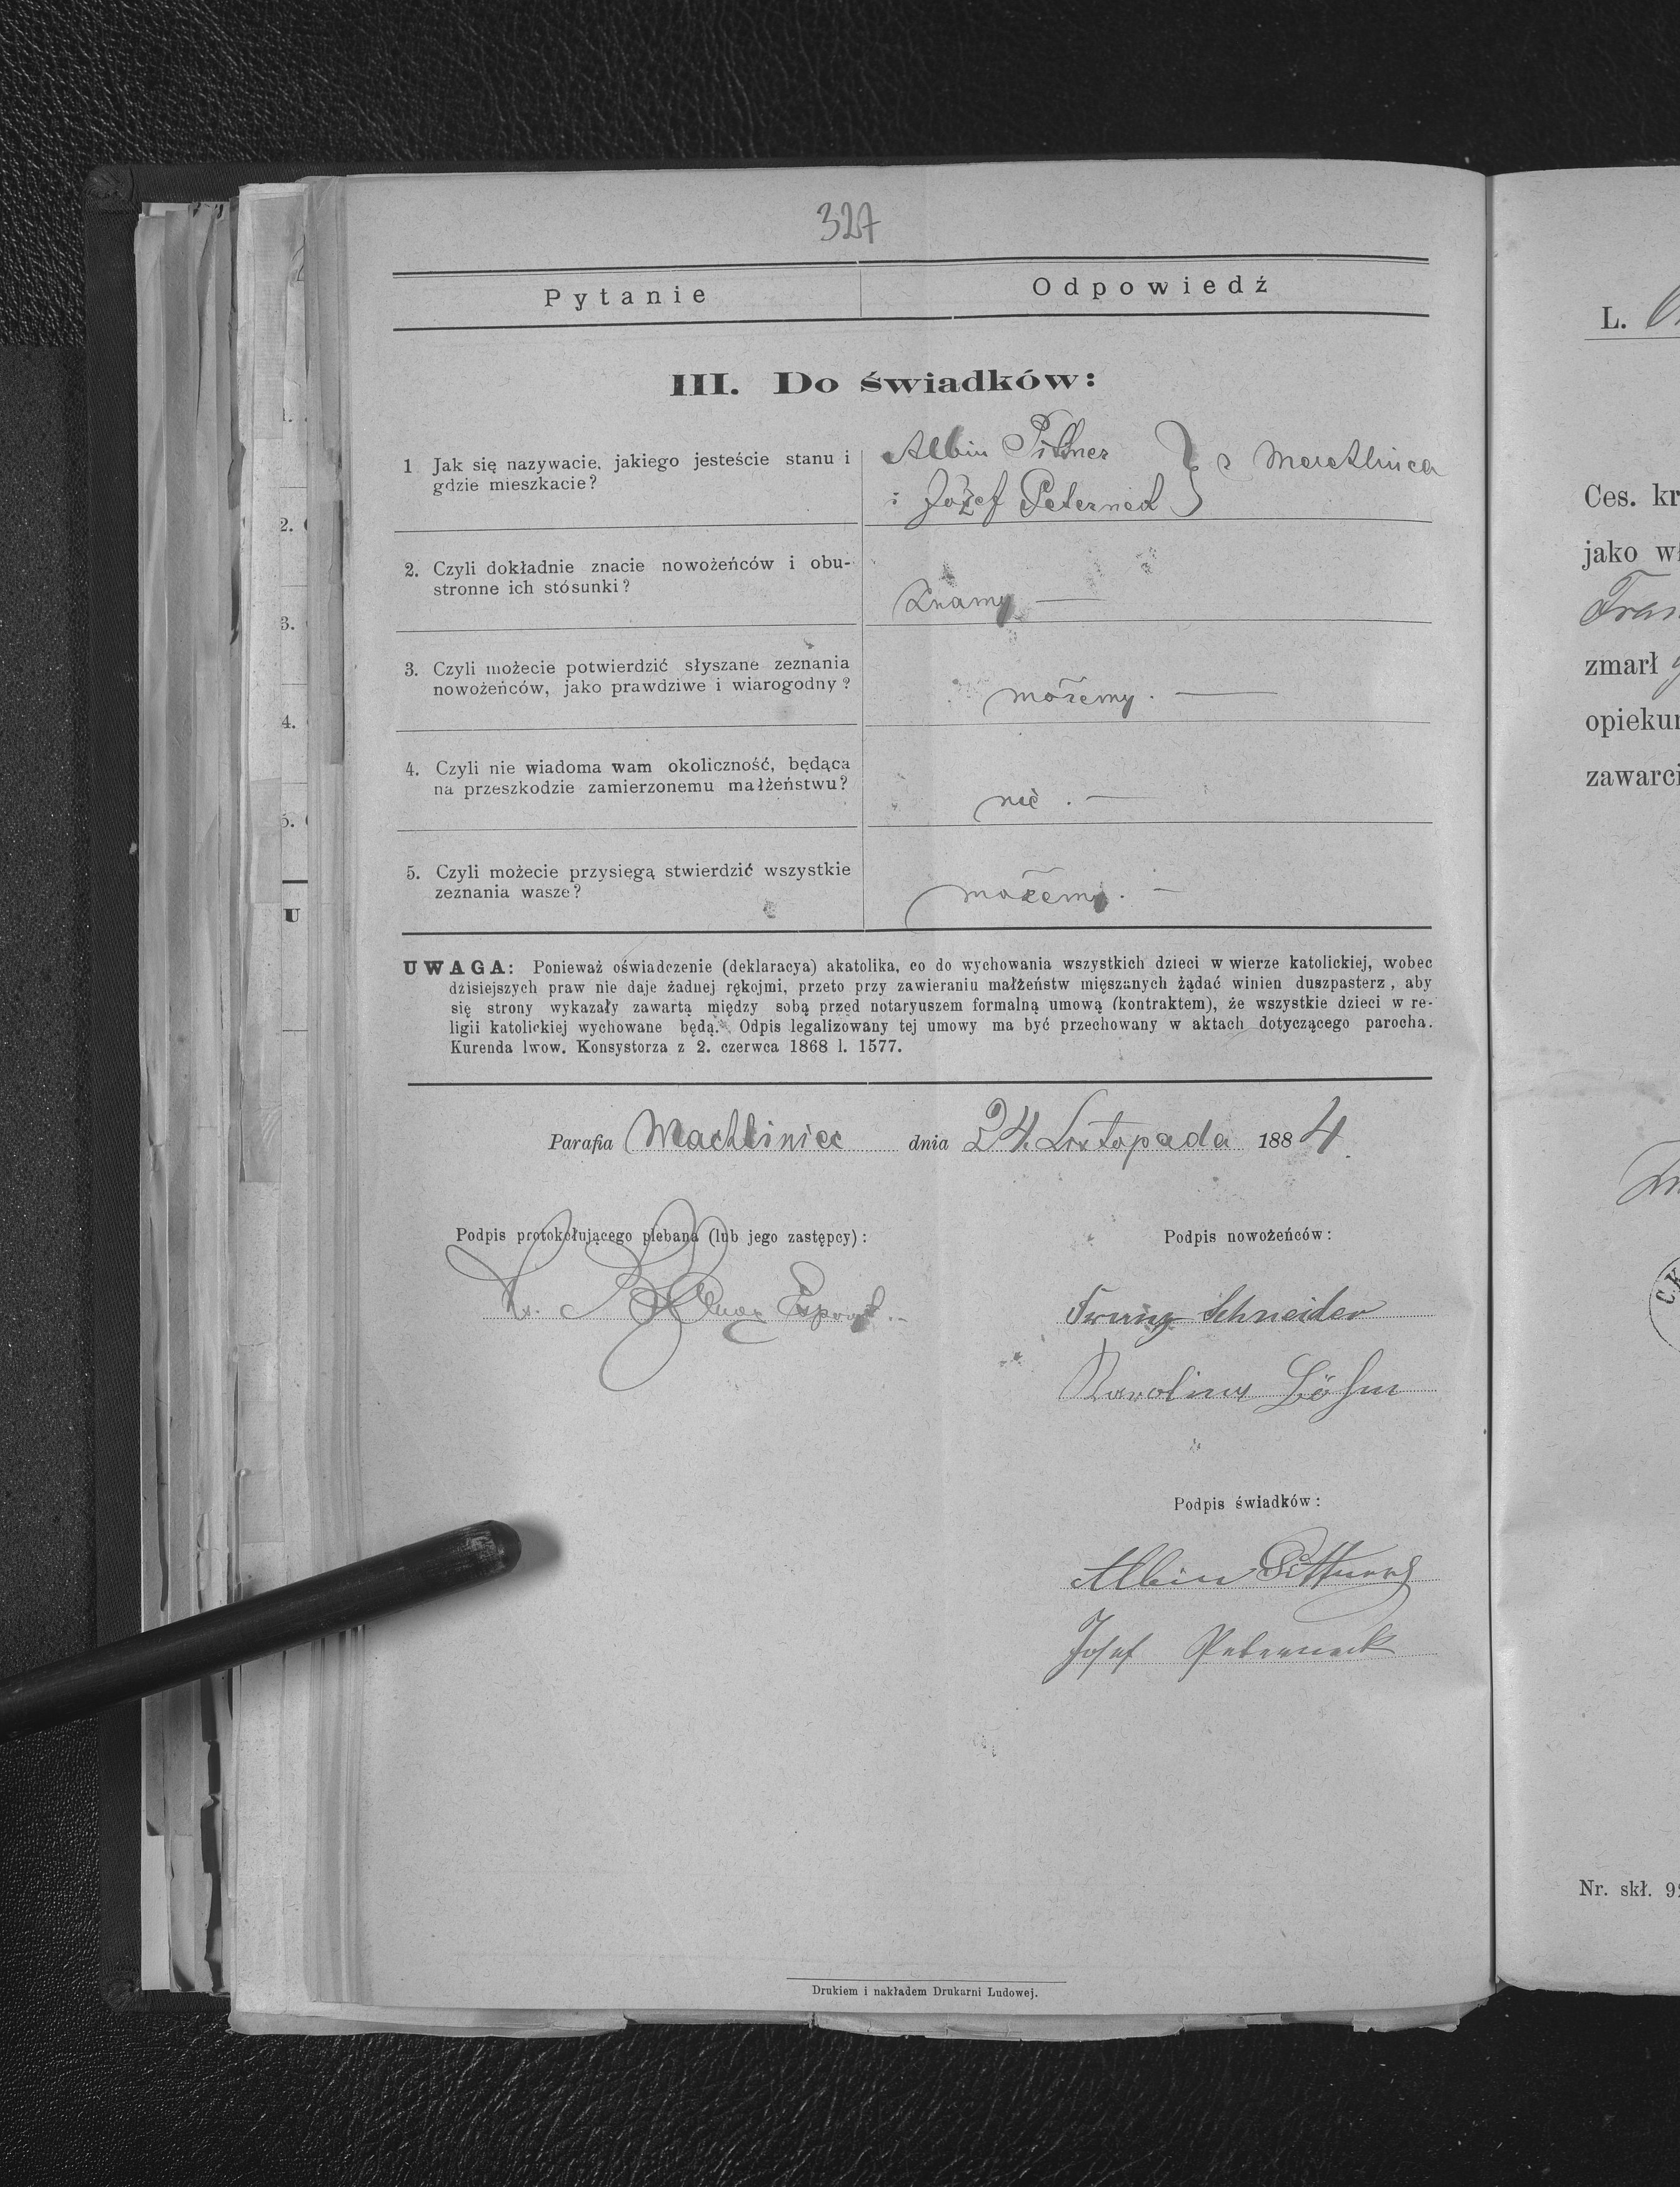 327
Pytanie
Odpowiedź
III. Do świadków:
1 Jak się nazywacie, jakiego jesteście stanu i
gdzie mieszkacie?
Albin Pittner
i Józef Peternek } z Machlińca
2. Czyli dokładnie znacie nowożeńców i obu-
stronne ich stósunki?
Znamy —
3. Czyli możecie potwierdzić słyszane zeznania
nowożeńców, jako prawdziwe i wiarogodny?
możemy. —
4. Czyli nie wiadoma wam okoliczność, będąca
na przeszkodzie zamierzonemu małżeństwu?
nic. —
5. Czyli możecie przysięgą stwierdzić wszystkie
zeznania wasze?
możemy. —
UWAGA: Ponieważ oświadczenie (deklaracya) akatolika, co do wychowania wszystkich dzieci w wierze katolickiej, wobec
dzisiejszych praw nie daje żadnej rękojmi, przeto przy zawieraniu małżeństw mięszanych żądać winien duszpasterz, aby
się strony wykazały zawartą między sobą przed notaryuszem formalną umową (kontraktem), że wszystkie dzieci w re-
ligii katolickiej wychowane będą. Odpis legalizowany tej umowy ma być przechowany w aktach dotyczącego parocha.
Kurenda lwow. Konsystorza z 2. czerwca 1868 l. 1577.
Parafia Machliniec dnia 24. Listopada 1884.
Podpis protokółującego plebana (lub jego zastępcy):
Podpis nowożeńców:
Franz Schneider
Karolina Böhm
Podpis świadków:
Albin Pittner
Josef Peterneck
Drukiem i nakładem Drukarni Ludowej.
1.
2.
3.
4.
5.
U
L.
Ces. kr
jako wł
Fran
zmarł
opieku
zawarci
Nr. skł. 9